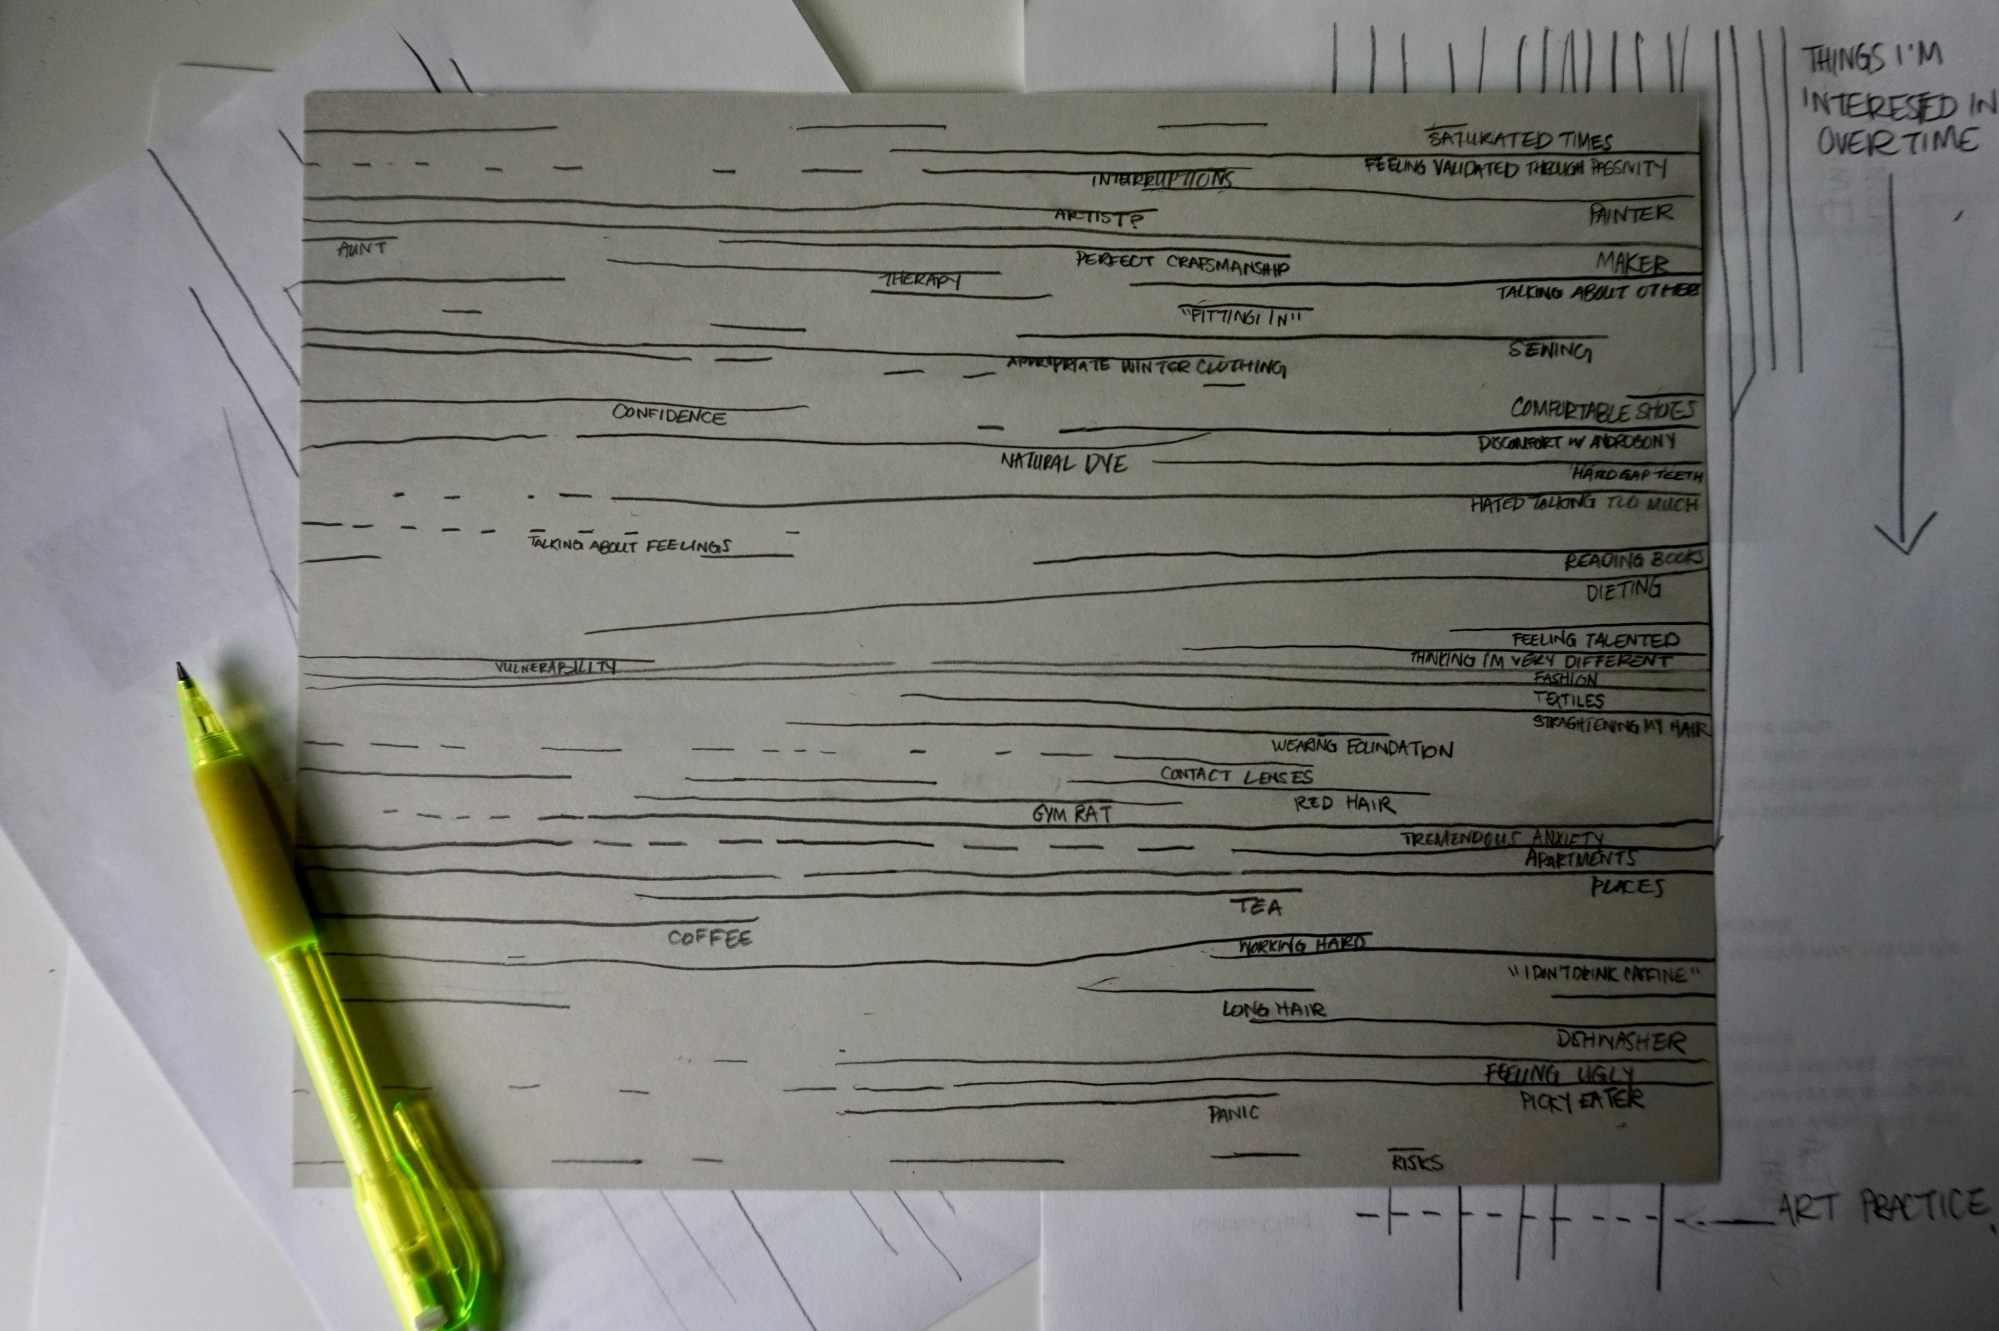 THINGS I'M
INTERESED IN
OVER TIME
SATURATED TIMES
FEELING VALIDATED THROUGH PASSIVITY
INTERRUPTIONS
ARTIST?
PAINTER
AUNT
PERFECT CRAFSMANSHIP
MAKER
THERAPY
TALKING ABOUT OTHERS
"FITTING IN"
SEWING
APPROPRIATE WINTER CLOTHING
CONFIDENCE
COMFORTABLE SHOES
DISCOMFORT W/ ANDROGONY
NATURAL DYE
HATED GAP TEETH
HATED TALKING TOO MUCH
TALKING ABOUT FEELINGS
READING BOOKS
DIETING
FEELING TALENTED
VULNERABILITY
THINKING I'M VERY DIFFERENT
FASHION
TEXTILES
STRAGHTENING MY HAIR
WEARING FOUNDATION
CONTACT LENSES
RED HAIR
GYM RAT
TREMENDOUS ANXIETY
APARTMENTS
PLACES
TEA
COFFEE
WORKING HARD
"I DON'T DRINK CAFFINE"
LONG HAIR
DISHWASHER
FEELING UGLY
PICKY EATER
PANIC
RISKS
ART PRACTICE